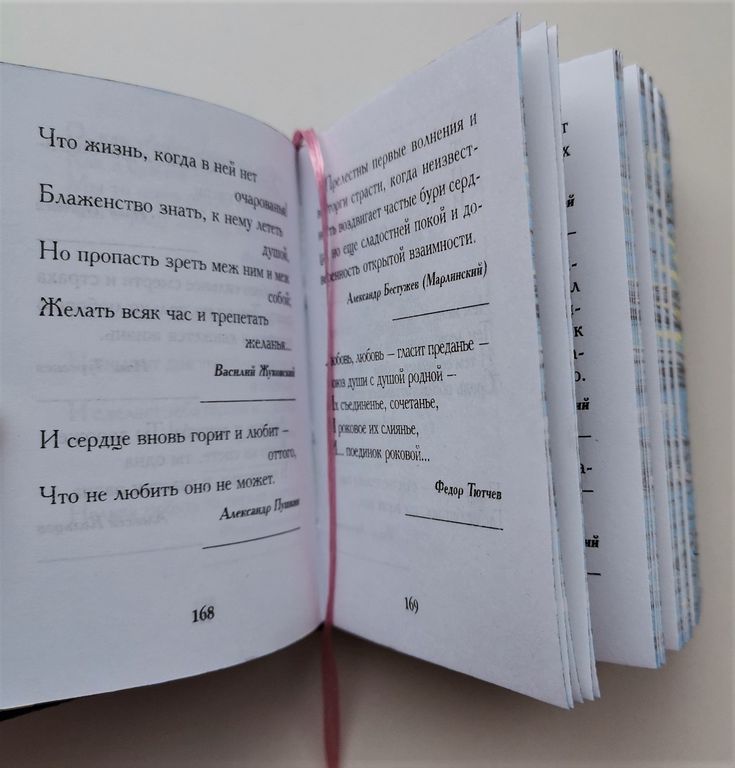 Что жизнь, когда в ней нет
очарованья!
Блаженство знать, к нему лететь
душой,
Но пропасть зреть меж ним и меж
собой;
Желать всяк час и трепетать
желанья...
Василий Жуковский
И сердце вновь горит и любит –
оттого,
Что не любить оно не может.
Александр Пушкин
168
Прелестны первые волнения и
восторги страсти, когда неизвест-
ность воздвигает частые бури серд-
но еще сладостней покой и до-
веренность открытой взаимности.
Александр Бестужев (Марлинский)
Любовь, любовь – гласит преданье –
Союз души с душой родной –
Их съединенье, сочетанье,
И роковое их слиянье,
И... поединок роковой...
Федор Тютчев
169